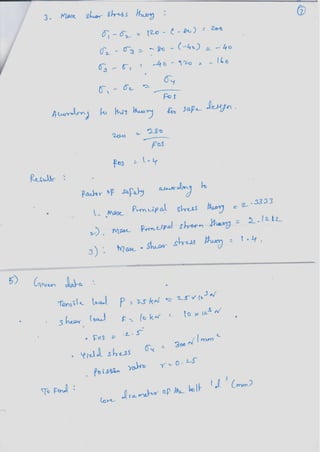 ②
3. Max shear stress theory :
σ₁ - σ₂ = 120 - (-80) = 200
σ₂ - σ₃ = -80 - (-40) = -40
σ₃ - σ₁ = -40 - 120 = -160
σ₁ - σ₂ = σy / FOS
According to this theory for safe design.
200 = 280 / FOS
FOS = 1.4
Result :
Factor of safety according to
1. Max Principal stress theory = 2.3333
2). Max Principal strain theory = 2.1212
3) : Max. shear stress theory = 1.4.
5) Given data :
Tensile load P = 25 kN = 25 x 10³ N
Shear load Fs = 10 kN = 10 x 10³ N
• FOS = 2.5
• Yield stress σy = 300 N/mm²
• Poisson ratio r = 0.25
To Find :
Core diameter of the bolt 'd' (mm)